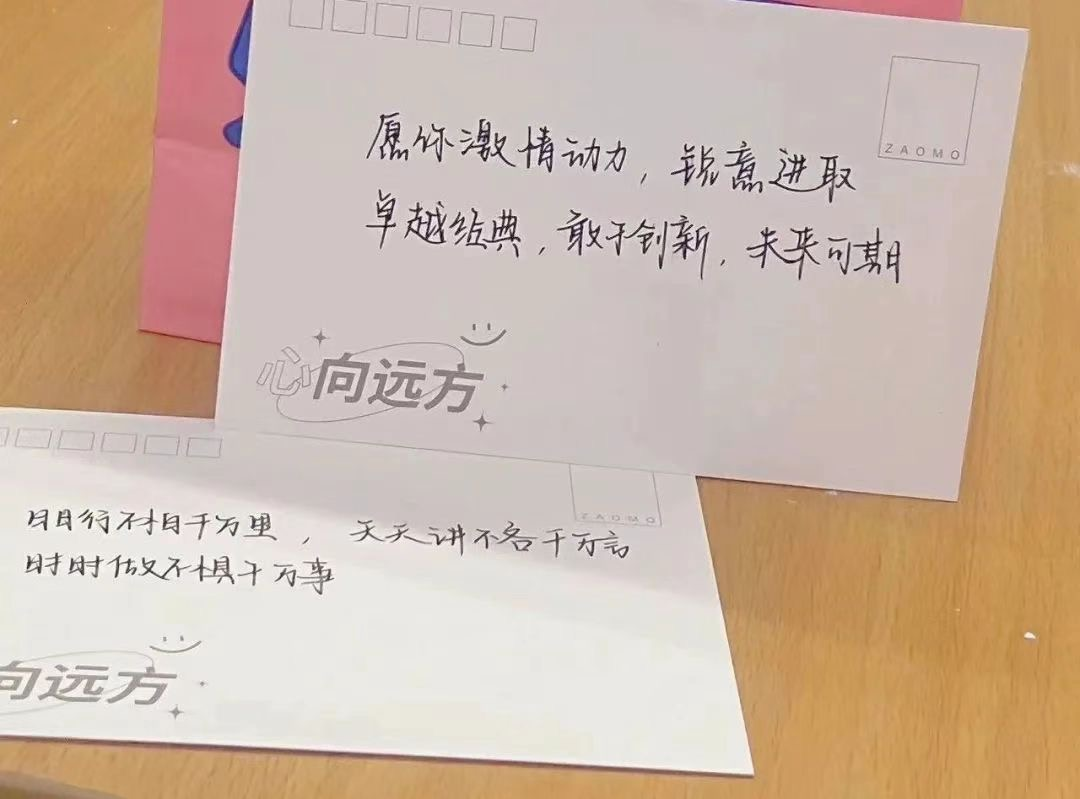 ZAOMO
愿你激情动力，锐意进取
卓越经典，敢于创新，未来可期
心向远方
ZAOMO
日日行不怕千万里，天天讲不吝千万言
时时做不惧千万事
向远方